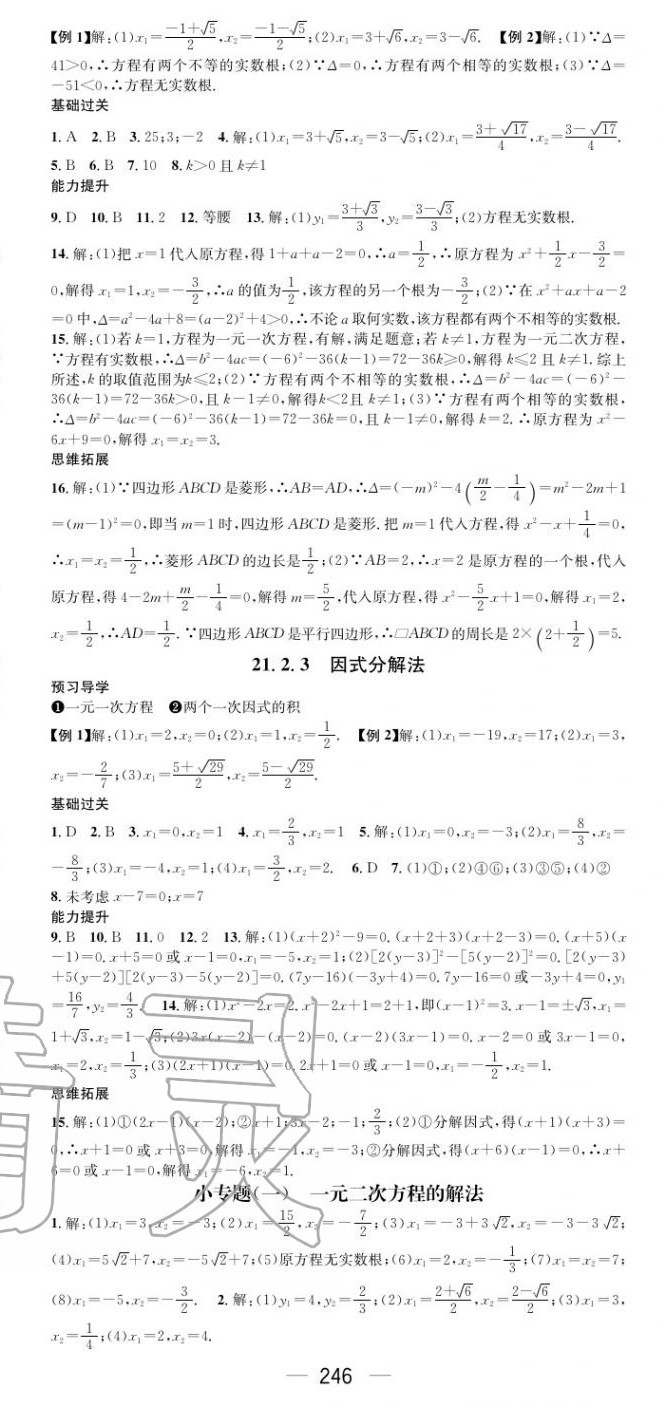 【例 1】解:(1)x₁=(-1+√5)/2,x₂=(-1-√5)/2;(2)x₁=3+√6,x₂=3-√6. 【例 2】解:(1)∵Δ=
41>0,∴方程有两个不等的实数根;(2)∵Δ=0,∴方程有两个相等的实数根;(3)∵Δ=
-51<0,∴方程无实数根.
基础过关
1. A 2. B 3. 25;3;-2 4. 解:(1)x₁=3+√5,x₂=3-√5;(2)x₁=(3+√17)/4,x₂=(3-√17)/4.
5. B 6. B 7. 10 8. k>0 且 k≠1
能力提升
9. D 10. B 11. 2 12. 等腰 13. 解:(1)y₁=(3+√3)/3,y₂=(3-√3)/3;(2)方程无实数根.
14. 解:(1)把 x=1 代入原方程,得 1+a+a-2=0,∴a=1/2,∴原方程为 x²+1/2x-3/2=
0,解得 x₁=1,x₂=-3/2,∴a 的值为1/2,该方程的另一个根为-3/2;(2)∵在 x²+ax+a-2
=0 中,Δ=a²-4a+8=(a-2)²+4>0,∴不论 a 取何实数,该方程都有两个不相等的实数根.
15. 解:(1)若 k=1,方程为一元一次方程,有解,满足题意;若 k≠1,方程为一元二次方程,
∵方程有实数根,∴Δ=b²-4ac=(-6)²-36(k-1)=72-36k≥0,解得 k≤2 且 k≠1. 综上
所述,k 的取值范围为k≤2;(2)∵方程有两个不相等的实数根,∴Δ=b²-4ac=(-6)²-
36(k-1)=72-36k>0,且 k-1≠0,解得k<2且 k≠1;(3)∵方程有两个相等的实数根,
∴Δ=b²-4ac=(-6)²-36(k-1)=72-36k=0,且 k-1≠0,解得 k=2. ∴原方程为 x²-
6x+9=0,解得 x₁=x₂=3.
思维拓展
16. 解:(1)∵四边形 ABCD 是菱形,∴AB=AD,∴Δ=(-m)²-4(m/2-1/4)=m²-2m+1
=(m-1)²=0,即当 m=1 时,四边形 ABCD 是菱形. 把 m=1 代入方程,得 x²-x+1/4=0,
∴x₁=x₂=1/2,∴菱形 ABCD 的边长是1/2;(2)∵AB=2,∴x=2 是原方程的一个根,代入
原方程,得 4-2m+m/2-1/4=0,解得 m=5/2,代入原方程,得 x²-5/2x+1=0,解得 x₁=2,
x₂=1/2,∴AD=1/2. ∵四边形 ABCD 是平行四边形,∴▱ABCD 的周长是 2×(2+1/2)=5.
21. 2. 3 因式分解法
预习导学
❶一元一次方程 ❷两个一次因式的积
【例 1】解:(1)x₁=2,x₂=0;(2)x₁=1,x₂=-1/2. 【例 2】解:(1)x₁=-19,x₂=17;(2)x₁=3,
x₂=-2/7;(3)x₁=(5+√29)/2,x₂=(5-√29)/2.
基础过关
1. D 2. B 3. x₁=0,x₂=1 4. x₁=2/3,x₂=1 5. 解:(1)x₁=0,x₂=-3;(2)x₁=8/3,x₂=
-8/3;(3)x₁=-4,x₂=1;(4)x₁=3/2,x₂=2. 6. D 7. (1)①;(2)④⑥;(3)③⑤;(4)②
8. 未考虑 x-7=0;x=7
能力提升
9. B 10. B 11. 0 12. 2 13. 解:(1)(x+2)²-9=0. (x+2+3)(x+2-3)=0. (x+5)(x
-1)=0. x+5=0 或 x-1=0,x₁=-5,x₂=1;(2)[2(y-3)]²-[5(y-2)]²=0. [2(y-3)
+5(y-2)][2(y-3)-5(y-2)]=0. (7y-16)(-3y+4)=0. 7y-16=0 或-3y+4=0,y₁
=16/7,y₂=4/3. 14. 解:(1)x²-2x=2. x²-2x+1=2+1,即(x-1)²=3. x-1=±√3,x₁=
1+√3,x₂=1-√3;(2)3x(x-2)-(x-2)=0. (x-2)(3x-1)=0. x-2=0 或 3x-1=0,
x₁=2,x₂=1/3;(3)(2x+1)(x-1)=0. 2x+1=0 或 x-1=0,x₁=-1/2,x₂=1.
思维拓展
15. 解:(1)①(2x-1)(x-2);②x+1;3x-2;-1;2/3;(2)①分解因式,得(x+1)(x+3)=
0,∴x+1=0 或 x+3=0,解得 x₁=-1,x₂=-3;②分解因式,得(x+6)(x-1)=0,∴x+
6=0 或 x-1=0,解得 x₁=-6,x₂=1.
小专题(一) 一元二次方程的解法
1. 解:(1)x₁=3,x₂=-3;(2)x₁=15/2,x₂=-7/2;(3)x₁=-3+3√2,x₂=-3-3√2;
(4)x₁=5√2+7,x₂=-5√2+7;(5)原方程无实数根;(6)x₁=2,x₂=-1/3;(7)x₁=x₂=7;
(8)x₁=-5,x₂=-3/2. 2. 解:(1)y₁=4,y₂=2/3;(2)x₁=(2+√6)/2,x₂=(2-√6)/2;(3)x₁=3,
x₂=1/4;(4)x₁=2,x₂=4.
— 246 —
精灵